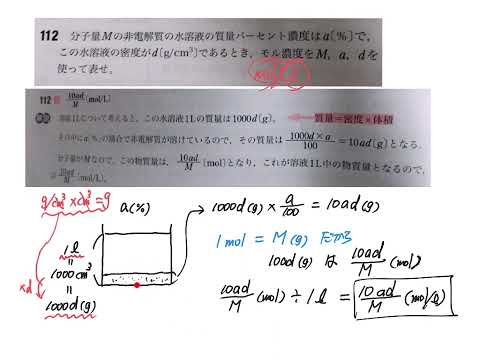 112 分子量Mの非電解質の水溶液の質量パーセント濃度はa〔%〕で，
この水溶液の密度がd〔g/cm³〕であるとき，モル濃度をM，a，dを
使って表せ。
mol/L
112 答 10ad/M〔mol/L〕
溶液1Lについて考えると，この水溶液1Lの質量は1000d〔g〕。
質量=密度×体積
その中にa〔%〕の割合で非電解質が溶けているので，その質量は 1000d×a/100 =10ad〔g〕となる。
分子量がMなので，この物質量は，10ad/M〔mol〕となり，これが溶液1L中の物質量となるので，
10ad/M〔mol/L〕。
g/cm³ × cm³ = g
a(%)
1000d(g) × a/100 = 10ad(g)
×d
1ℓ
=
1000cm³
=
1000d(g)
1mol = M(g) だから
10ad(g) は 10ad/M (mol)
10ad/M (mol) ÷ 1ℓ = 10ad/M (mol/ℓ)